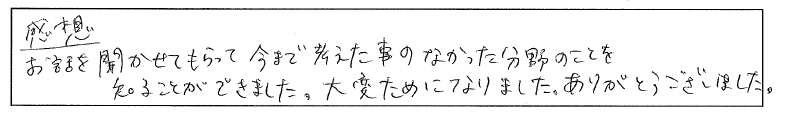 感想
お話を聞かせてもらって今まで考えた事のなかった分野のことを
知ることができました。大変ためになりました。ありがとうございました。